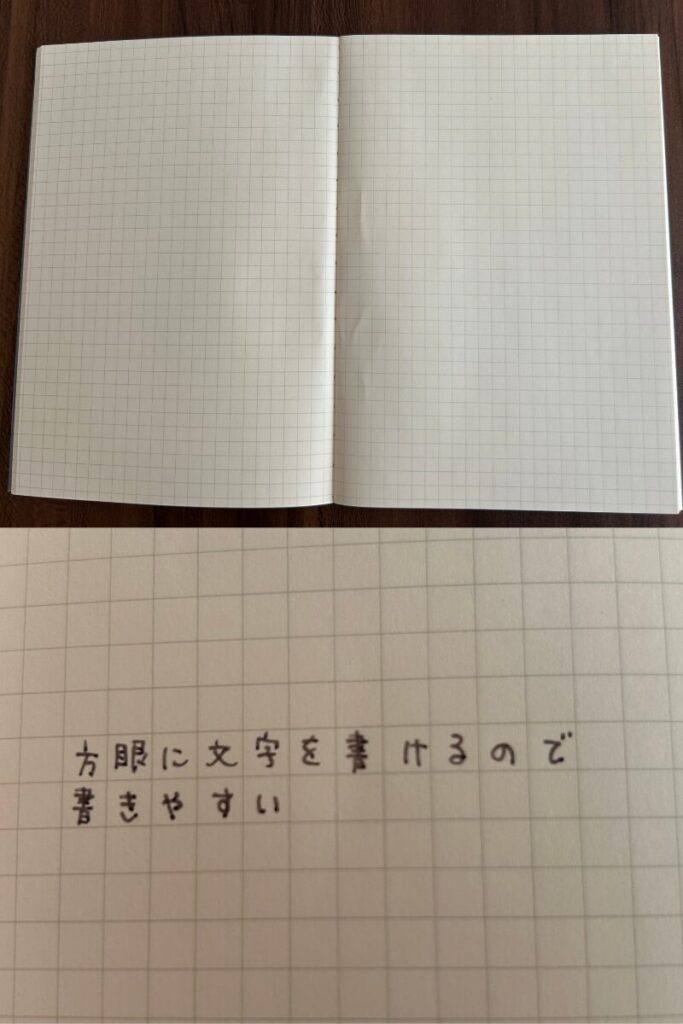 方眼に文字を書けるので
書きやすい